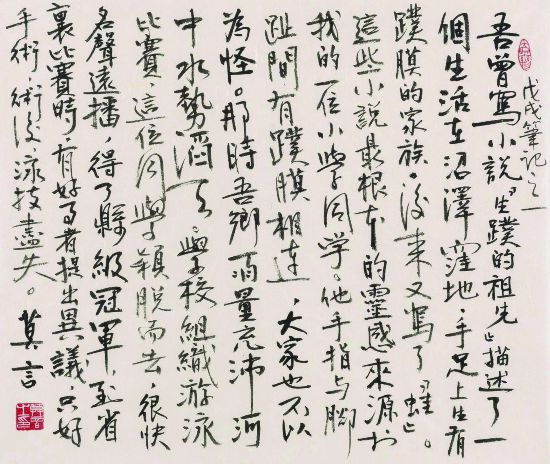 戊戌筆记之一
吾曾寫小說「生蹼的祖先」描述了一
個生活在沼澤窪地、手足上生有
蹼膜的家族。後来又寫了
這些小說最根本的靈感来源於
我的一位小學同学。他手指与脚
趾間有蹼膜相連，大家也不以
為怪。那時吾鄉雨量充沛河
中水勢滔天。學校組織游泳
比賽，這位同學穎脫而去，很快
名聲遠播，得了縣級冠軍。至省
裏比賽時，有好事者提出異議，只好
手術，術後泳技盡失。莫言